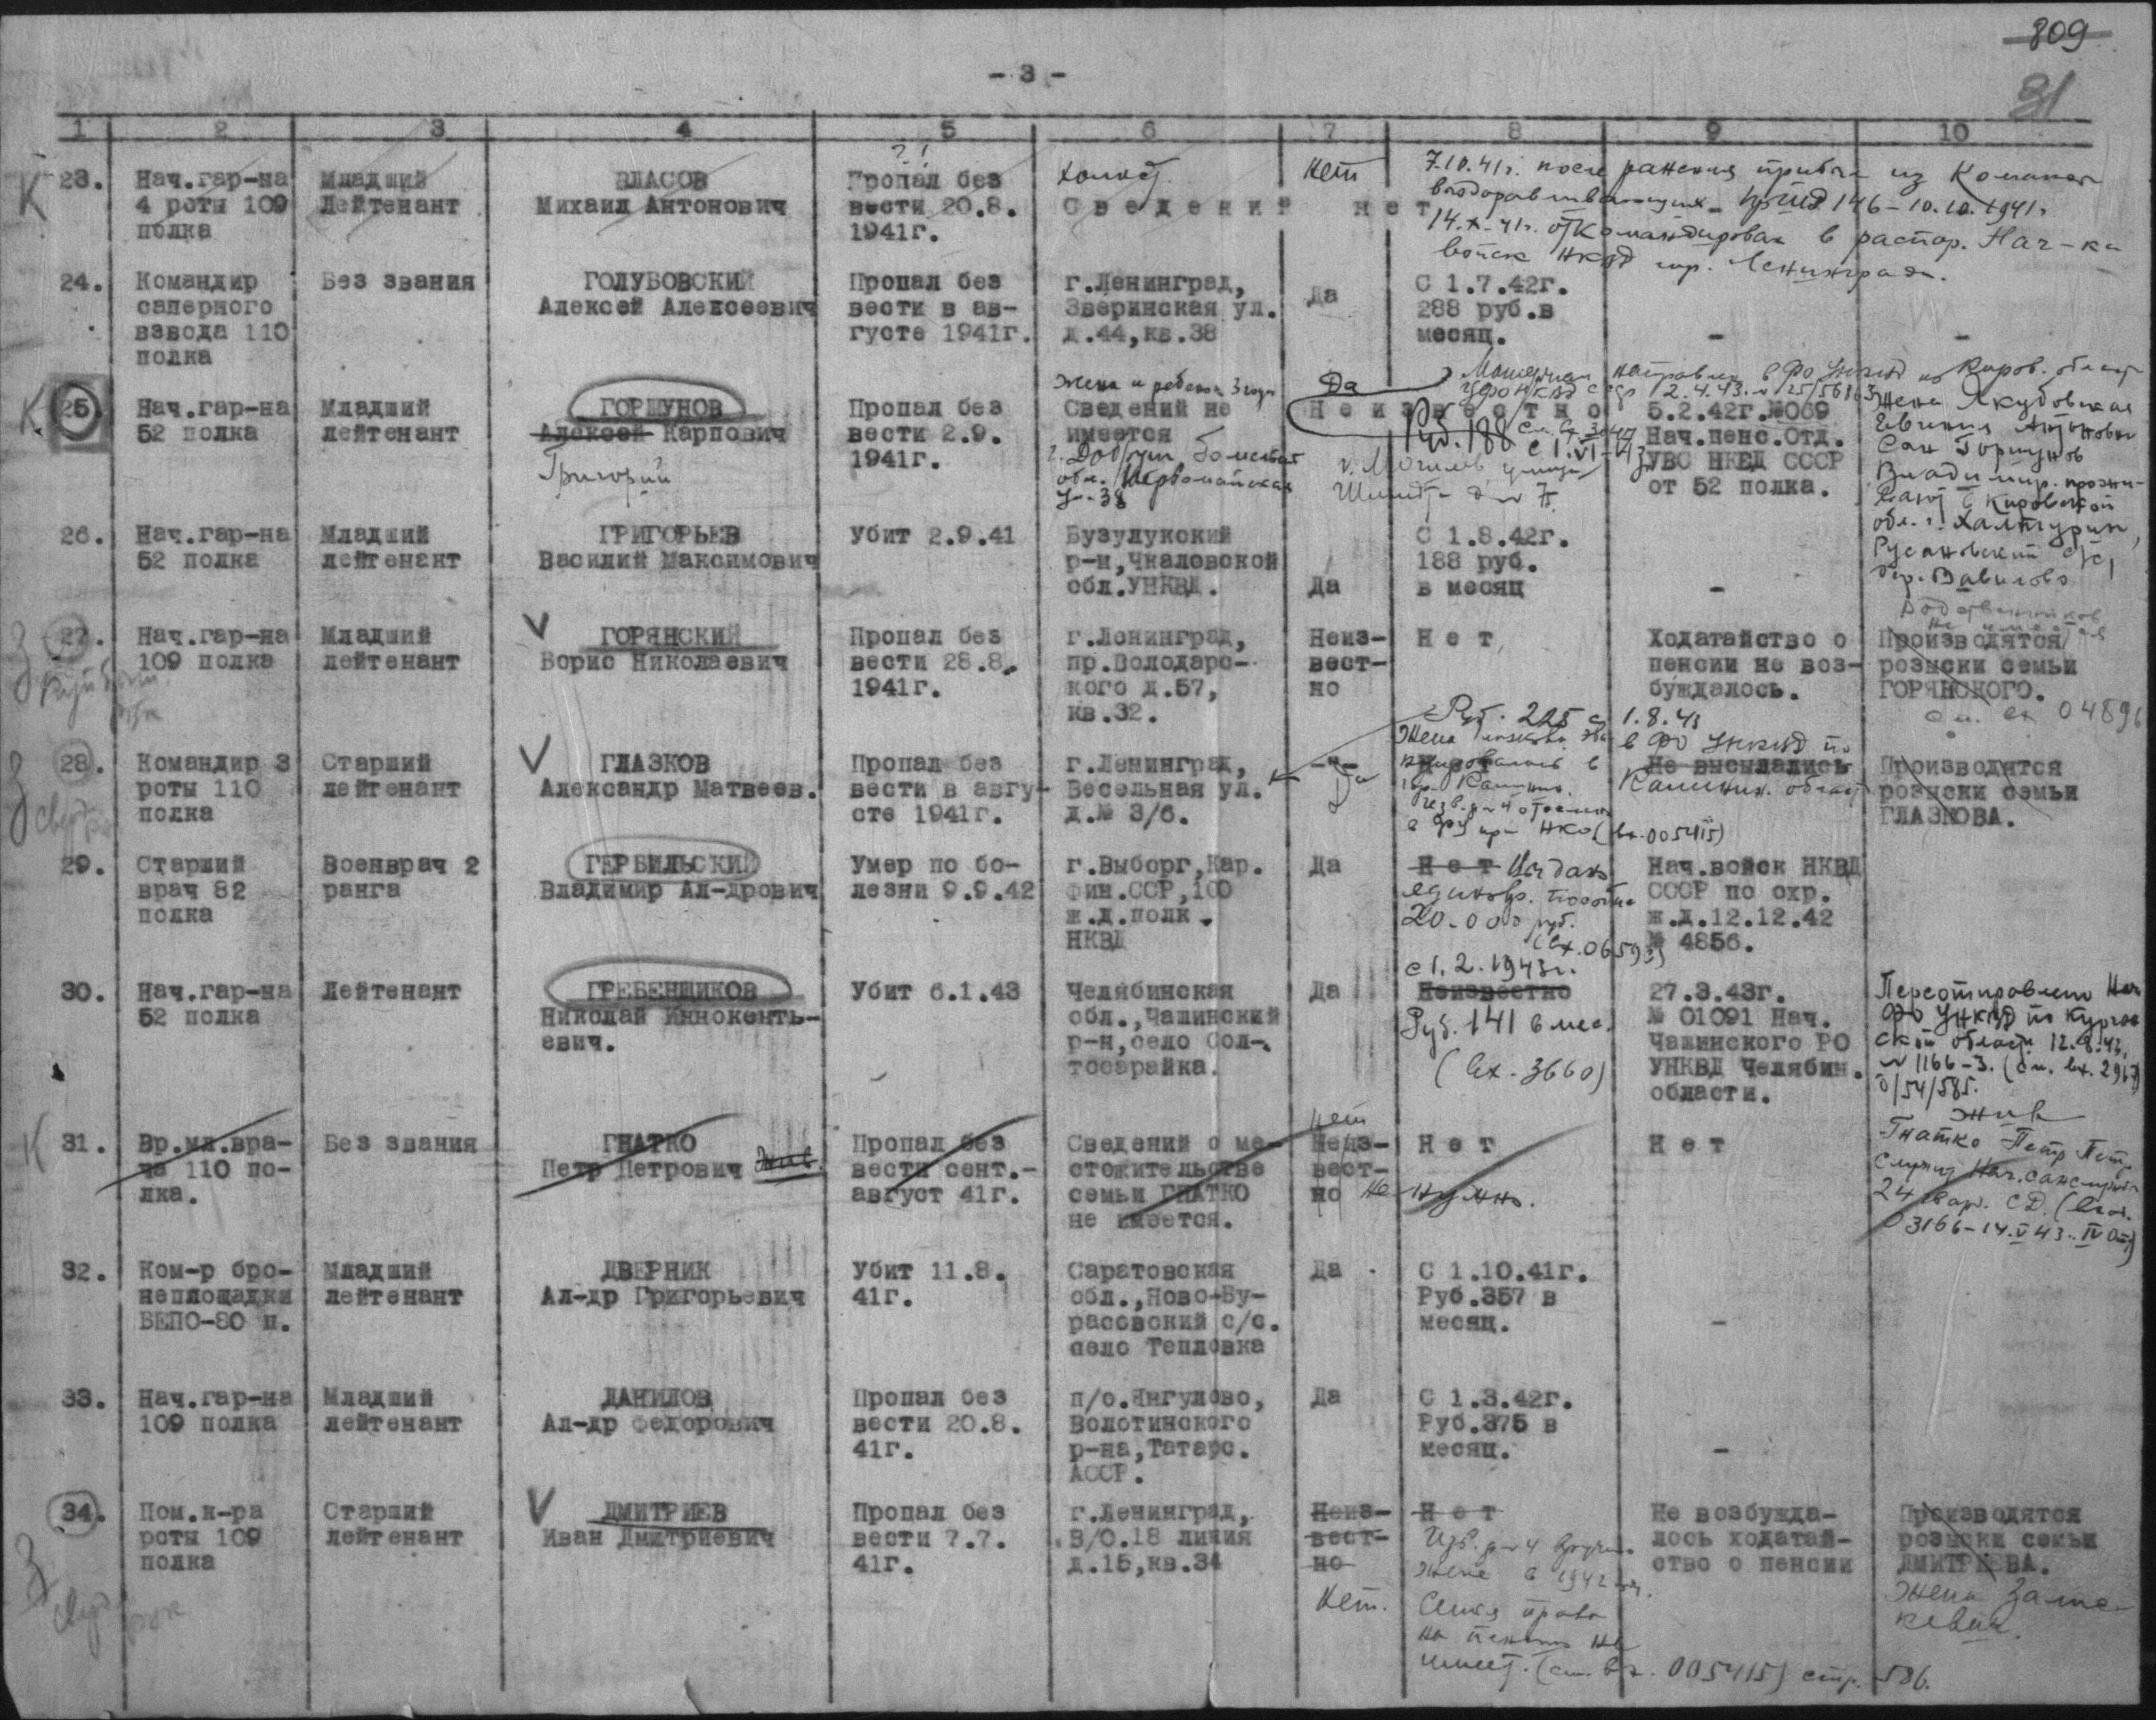 809
31
- 3 -
1 2 3 4 5 6 7 8 9 10
К
23. Нач.гар-на
4 роты 109
полка
Младший
Лейтенант
ВЛАСОВ
Михаил Антонович
?!
Пропал без
вести 20.8.
1941г.
холост.
Сведений нет
Нет
7.10.41г. после ранения прибыл из
выздоравливающих 146 - 10.10.1941г.
14.X-41г. откомандирован в распор. Нач-ка
войск НКВД гор. Ленинграда.
24. Командир
саперного
взвода 110
полка
Без звания
ГОЛУБОВСКИЙ
Алексей Алексеевич
Пропал без
вести в ав-
густе 1941г.
г.Ленинград,
Зверинская ул.
д.44,кв.38
Да
С 1.7.42г.
288 руб.в
месяц.
-
-
К
25. Нач.гар-на
52 полка
Младший
лейтенант
ГОРШУНОВ
Алексей Карпович
Григорий
Пропал без
вести 2.9.
1941г.
Жена и ребенок 3 года
Сведений не
имеется
г. Добруш, Гомельск
обл. Первомайская
38
Да
Неизвестно
Материал направлен в ФО УНКВД по Киров. област
12.4.43. № 25/5616
Руб. 188 с 1.VI-43
г. Могилев, улица
Шмидта д № 7.
5.2.42г.№069
Нач.пенс.Отд.
УВС НКВД СССР
от 52 полка.
Жена Якубовская
Евгения Антоновн
Сын Горшунов
Владимир. прожи-
вают в Кировской
обл. г. Халтурин,
Русановский с/с,
дер. Вавилово
26. Нач.гар-на
52 полка
Младший
лейтенант
ГРИГОРЬЕВ
Василий Максимович
Убит 2.9.41
Бузулукский
р-н,Чкаловской
обл.УНКВД.
Да
С 1.8.42г.
188 руб.
в месяц
-
З
27. Нач.гар-на
109 полка
Младший
лейтенант
V
ГОРЯНСКИЙ
Борис Николаевич
Пропал без
вести 28.8.
1941г.
г.Ленинград,
пр.Володарс-
кого д.57,
кв.32.
Неиз-
вест-
но
Нет
Ходатайство о
пенсии не воз-
буждалось.
Родственников
не имеется
Производятся
розыски семьи
ГОРЯНСКОГО.
см. вх 04896
З
28. Командир 3
роты 110
полка
Старший
лейтенант
V
ГЛАЗКОВ
Александр Матвеев.
Пропал без
вести в авгу-
сте 1941г.
г.Ленинград,
Весельная ул.
д.№ 3/6.
-"-
Да
Руб. 225 с 1.8.43
Жена Глазкова эва
куировалась в
гор. Калинин.
Изв. № 4 отослано
в ФУ при НКО (вх.005415)
в ФО УНКВД по
Не высылались
Калинин. област
Производятся
розыски семьи
ГЛАЗКОВА.
29. Старший
врач 82
полка
Военврач 2
ранга
ГЕРБИЛЬСКИЙ
Владимир Ал-дрович
Умер по бо-
лезни 9.9.42
г.Выборг,Кар.
Фин.ССР,100
ж.д.полк.
НКВД
Да
Нет Выдано
единовр. пособие
20.000 руб.
(вх.06593)
Нач.войск НКВД
СССР по охр.
ж.д.12.12.42
№ 4856.
30. Нач.гар-на
52 полка
Лейтенант
ГРЕБЕНЩИКОВ
Николай Иннокенть-
евич.
Убит 6.1.43
Челябинская
обл.,Чашинский
р-н,село Сол-
тосарайка.
Да
с 1.2.1943г.
Неизвестно
Руб.141 в мес.
(Вх.3660)
27.3.43г.
№ 01091 Нач.
Чашинского РО
УНКВД Челябин.
области.
Переотправлено Нач
ФО УНКВД по Курган
ской област. 12.8.43,
№ 1166-3. (см. вх. 2967)
0/54/585.
К
31. Вр.мл.вра-
ча 110 по-
лка.
Без звания
ГНАТКО
Петр Петрович Жив.
Пропал без
вести сент.-
август 41г.
Сведений о ме-
стожительстве
семьи ГНАТКО
не имеется.
Нет
Неиз-
вест-
но Не нужно.
Нет
Нет
Жив
Гнатко Петр Петр.
служит Нач.санслужб
24 гвар. СД. (вход.
03166-14.V43. IV Отд)
32. Ком-р бро-
неплощадки
БЕПО-80 п.
Младший
лейтенант
ДВЕРНИК
Ал-др Григорьевич
Убит 11.8.
41г.
Саратовская
обл.,Ново-Бу-
расовский с/с.
село Тепловка
Да
С 1.10.41г.
Руб.357 в
месяц.
-
33. Нач.гар-на
109 полка
Младший
лейтенант
ДАНИЛОВ
Ал-др Федорович
Пропал без
вести 20.8.
41г.
п/о.Янгулово,
Волотинского
р-на,Татарс.
АССР.
Да
С 1.3.42г.
Руб.375 в
месяц.
-
З
34. Пом.к-ра
роты 109
полка
Старший
лейтенант
V
ДМИТРИЕВ
Иван Дмитриевич
Пропал без
вести 7.7.
41г.
г.Ленинград,
В/О.18 линия
д.15,кв.34
Неиз-
вест-
но
Нет.
Нет
Изв. № 4 вручено
жене в 1942 году.
Семья права
на пенсию не
имеет. (см. вх. 005415) стр. 586.
Не возбужда-
лось ходатай-
ство о пенсии
Производятся
розыски семьи
ДМИТРИЕВА.
Жена